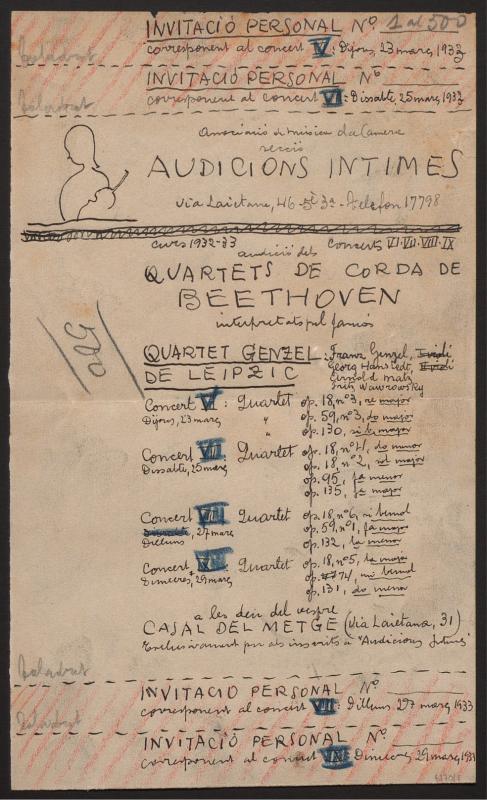 INVITACIÓ PERSONAL Nº 1 al 500
corresponent al concert V: Dijous, 23 març, 1933
INVITACIÓ PERSONAL Nº
corresponent al concert VII: Dissabte, 25 març, 1933
Associació de música da Camera
secció
AUDICIONS INTIMES
Via Laietana, 46 - 5è 3a - Telefon 17798
curs 1932-33
Concerts VI·VII·VIII·IX
audició dels
QUARTETS DE CORDA DE
BEETHOVEN
interpretats pel famós
500
QUARTET GENZEL: Franz Genzel,
DE LEIPZIC
Georg Hanstedt,
Fritz Wawrowsky
Concert VI: Quartet op. 18, nº 3, re major
Dijous, 23 març
" op. 59, nº 3, do major
" op. 130, si b major
Concert VII: Quartet op. 18, nº 4, do menor
Dissabte, 25 març
op. 18, nº 2, sol major
op. 95, fa menor
op. 135, fa major
Concert VIII: Quartet op. 18, nº 6, si bemol
Dilluns, 27 març
op. 59, nº 1, fa major
op. 132, la menor
Concert IX: Quartet op. 18, nº 5, la major
Dimecres, 29 març
op. 74, mi bemol
op. 131, do menor
a les deu del vespre
CASAL DEL METGE (Via Laietana, 31)
Exclusivament per als inscrits a "Audicions Intimes"
INVITACIÓ PERSONAL Nº
corresponent al concert VIII: Dilluns 27 març, 1933
INVITACIÓ PERSONAL Nº
corresponent al concert IX: Dimecres, 29 març, 1933